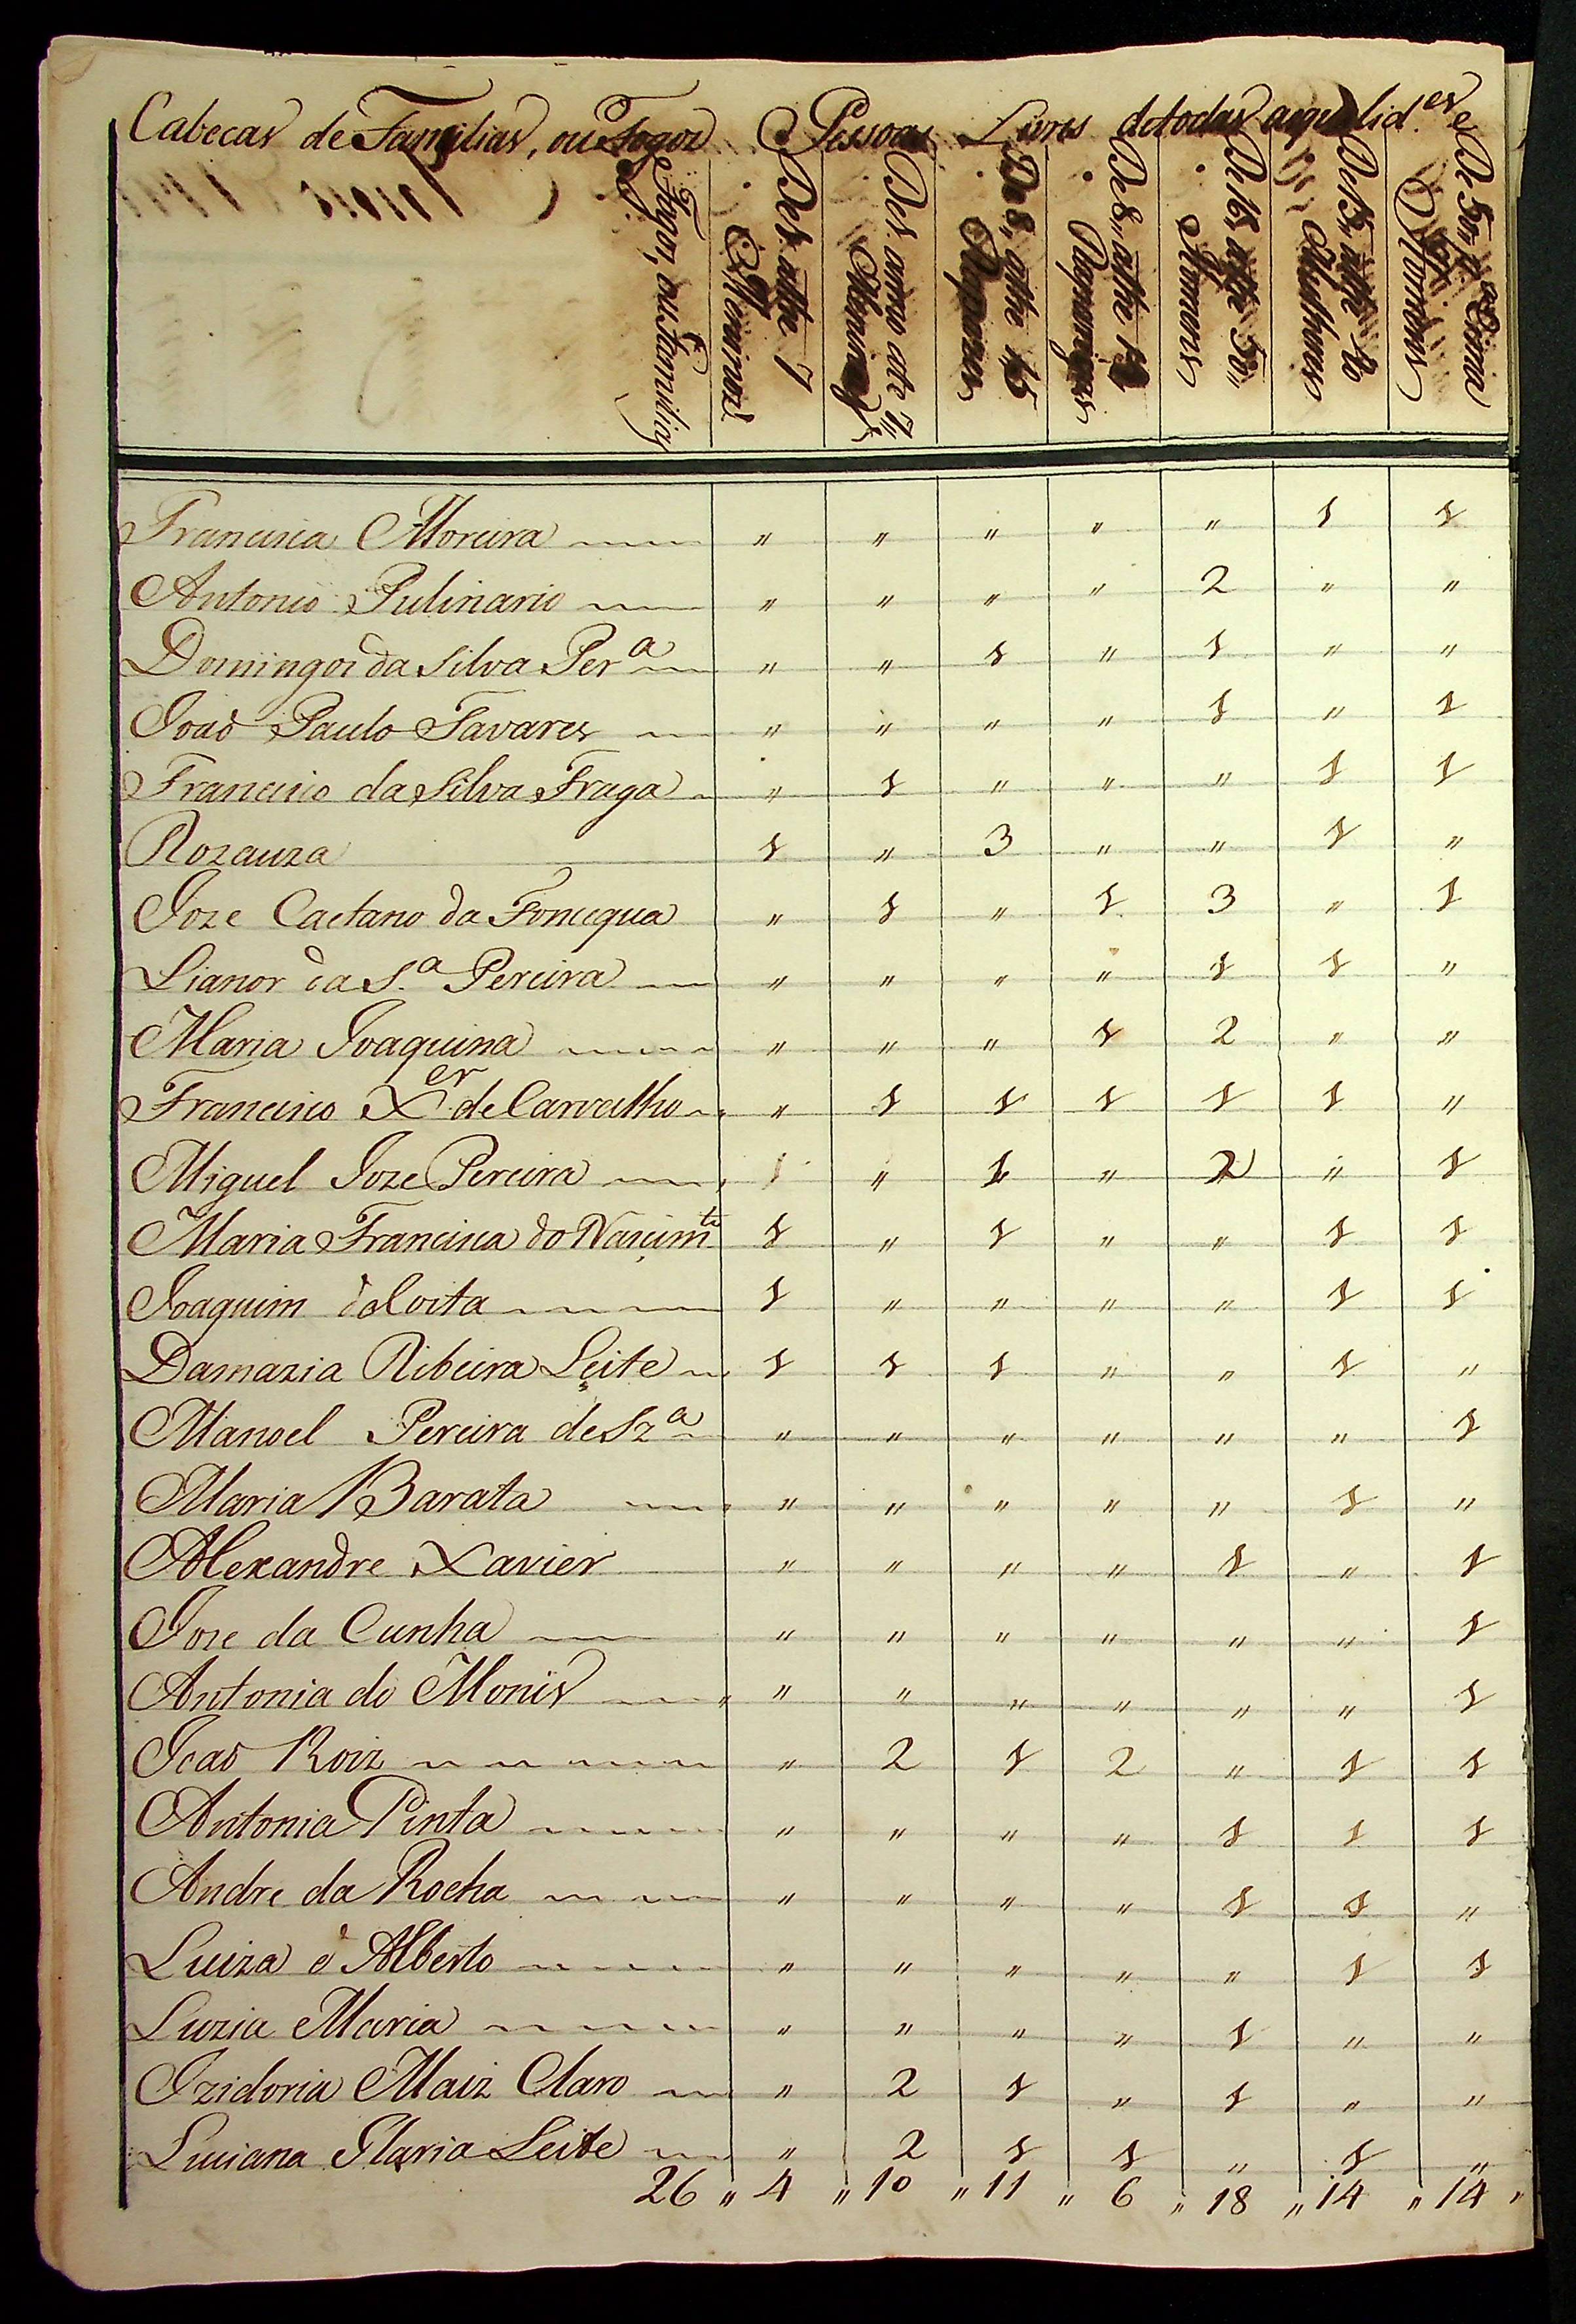 Cabecas de Familias, ou Fogos Pessoas Livres de todas as qualid.es
Fogos, ou Familias
De 1 athe 7 Meninos
De 1 anno ate 7 Meninas
De 8 athe 15 Rapazes
De 8 athe Raparigas
De 16 athe 50 Homens
De 15 athe Mulheres
De 50 p.a Cima Homens
Francisca Moreira " " " " " 1 1
Antonio Pulinario " " " " 2 " "
Domingos da Silva Per.a " " 1 " 1 " "
João Paulo Tavares " " " " 1 " 1
Francisco da Silva Fraga " 1 " " " 1 1
Rozaura 1 " 3 " " 1 "
Joze Caetano da Foncequa " 1 " 1 3 " 1
Lianor da S.a Pereira " " " " 1 1 "
Maria Joaquina " " " 1 2 " "
Francisco X.er de Carvalho " 1 1 1 1 1 "
Miguel Joze Pereira " 1 " 2 " 1
Maria Francisca do Nascim.to 1 " 1 " " 1 1
Joaquim da Costa 1 " " " " 1 1
Damazia Ribeira Leite 1 1 1 " " 1 "
Manoel Pereira de Sz.a " " " " " " 1
Maria Barata " " " " " 1 "
Alexandre Xavier " " " " 1 " 1
Joze da Cunha " " " " " " 1
Antonia do Monis " " " " " " 1
João Roiz " 2 1 2 " 1 1
Antonia Pinta " " " " 1 1 1
Andre da Rocha " " " " 1 1 "
Luiza d'Alberto " " " " " 1 1
Luzia Maria " " " " 1 " "
Izidoria Maiz Claro " 2 1 " 1 " "
Luciana Maria Leite " 2 1 1 " 1 "
26 " 4 " 10 " 11 " 6 " 18 " 14 " 14 "